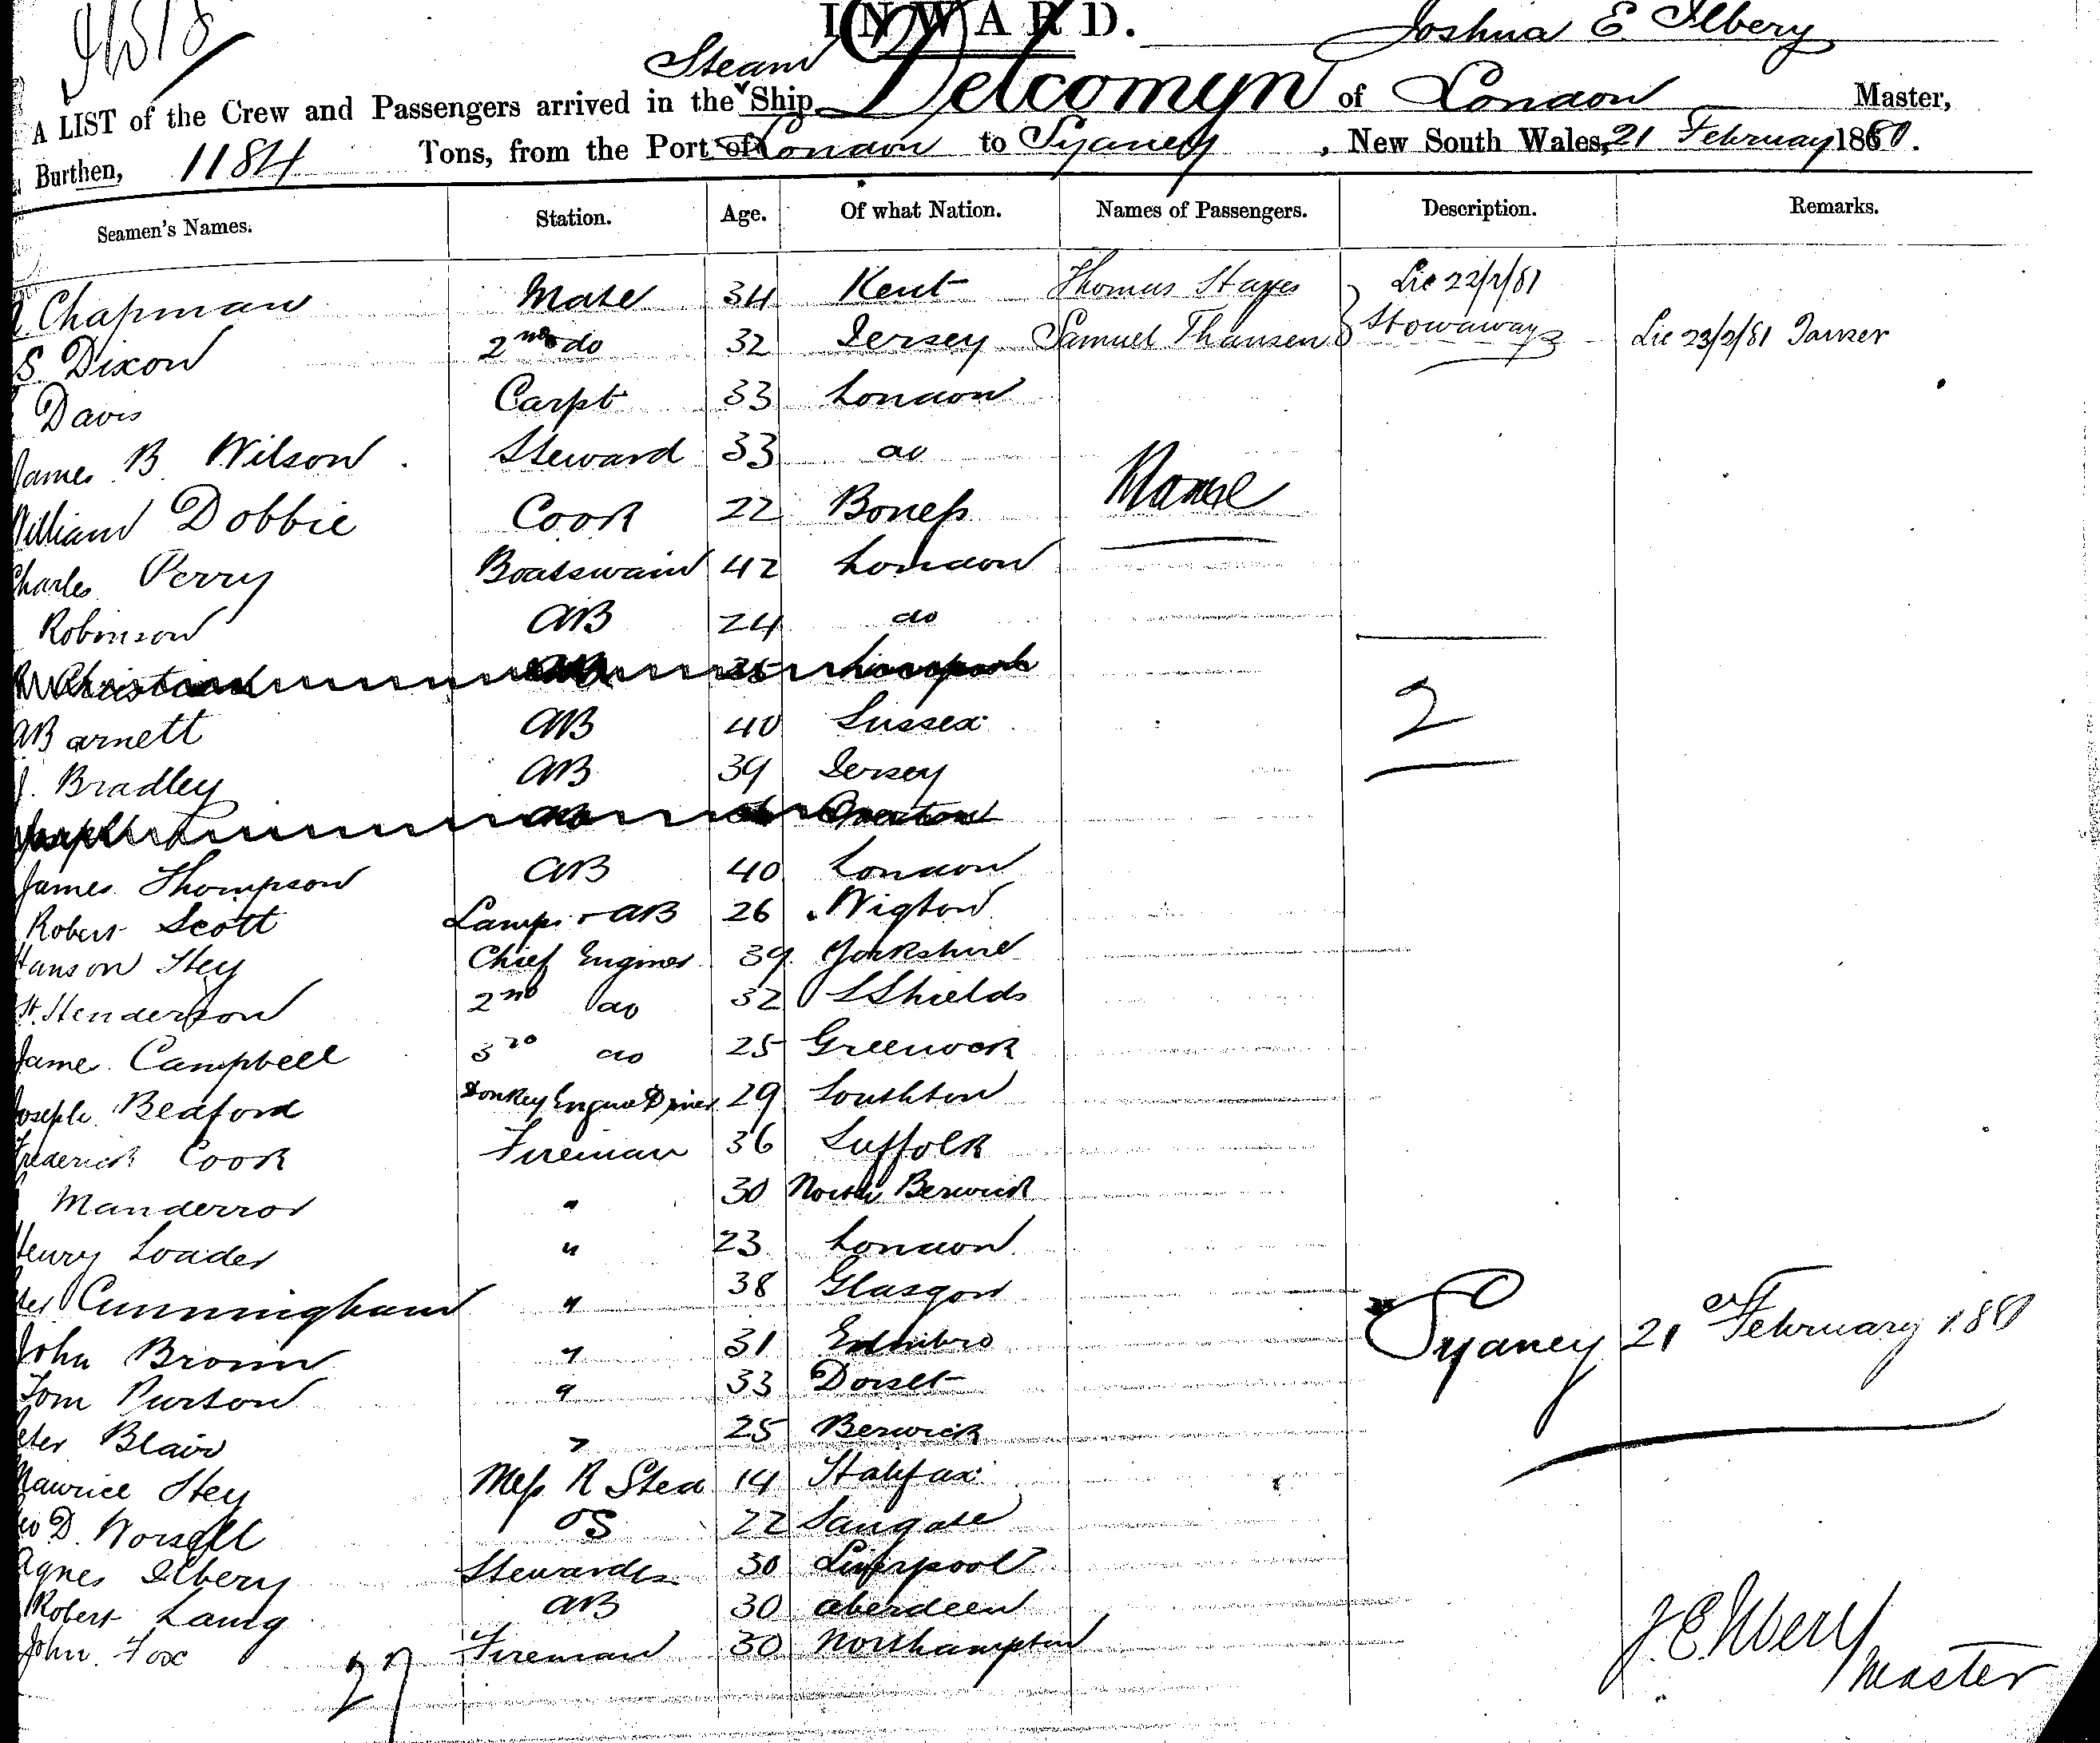 INWARD. Joshua E. Ilbery
A LIST of the Crew and Passengers arrived in the Steam Ship Delcomyn of London Master,
Burthen, 1184 Tons, from the Port of London to Sydney, New South Wales, 21 February 1881.
Seamen's Names. Station. Age. Of what Nation. Names of Passengers. Description. Remarks.
Chapman Mate 34 Kent Thomas Hayes Lic 22/2/81
S. Dixon 2nd do 32 Jersey Samuel Thansen Stowaways Lic 23/2/81
Davis Carpt 33 London
James B Wilson Steward 33 do
William Dobbie Cook 22 Boness
Charles Perry Boatswain 42 London
Robinson AB 24 do
Barnett AB 40 Sussex 2
J. Bradley AB 39 Jersey
James Thompson AB 40 London
Robert Scott Lamps & AB 26 Wigton
Hanson Hey Chief Engineer 39 Yorkshire
H. Henderson 2nd do 32 S Shields
Jame Campbell 3rd do 25 Greenock
Joseph Bedford Donkey Engine Driver 29 Southton
Frederick Cook Fireman 36 Suffolk
Manderson " 30 North Berwick
Henry Loader " 23 London
Cunningham " 38 Glasgow
John Brown " 31 Edinbro
Tom Purton " 33 Dorset
Blair " 25 Berwick
Maurice Hey Mess R Stew 14 Halifax
D. Worsell OS 22 Sangate
Agnes Ilbery Stewardess 30 Liverpool
Robert Laing AB 30 Aberdeen
John Fox Fireman 30 Northampton
27
Sydney 21st February 1881
J. E. Ilbery
Master